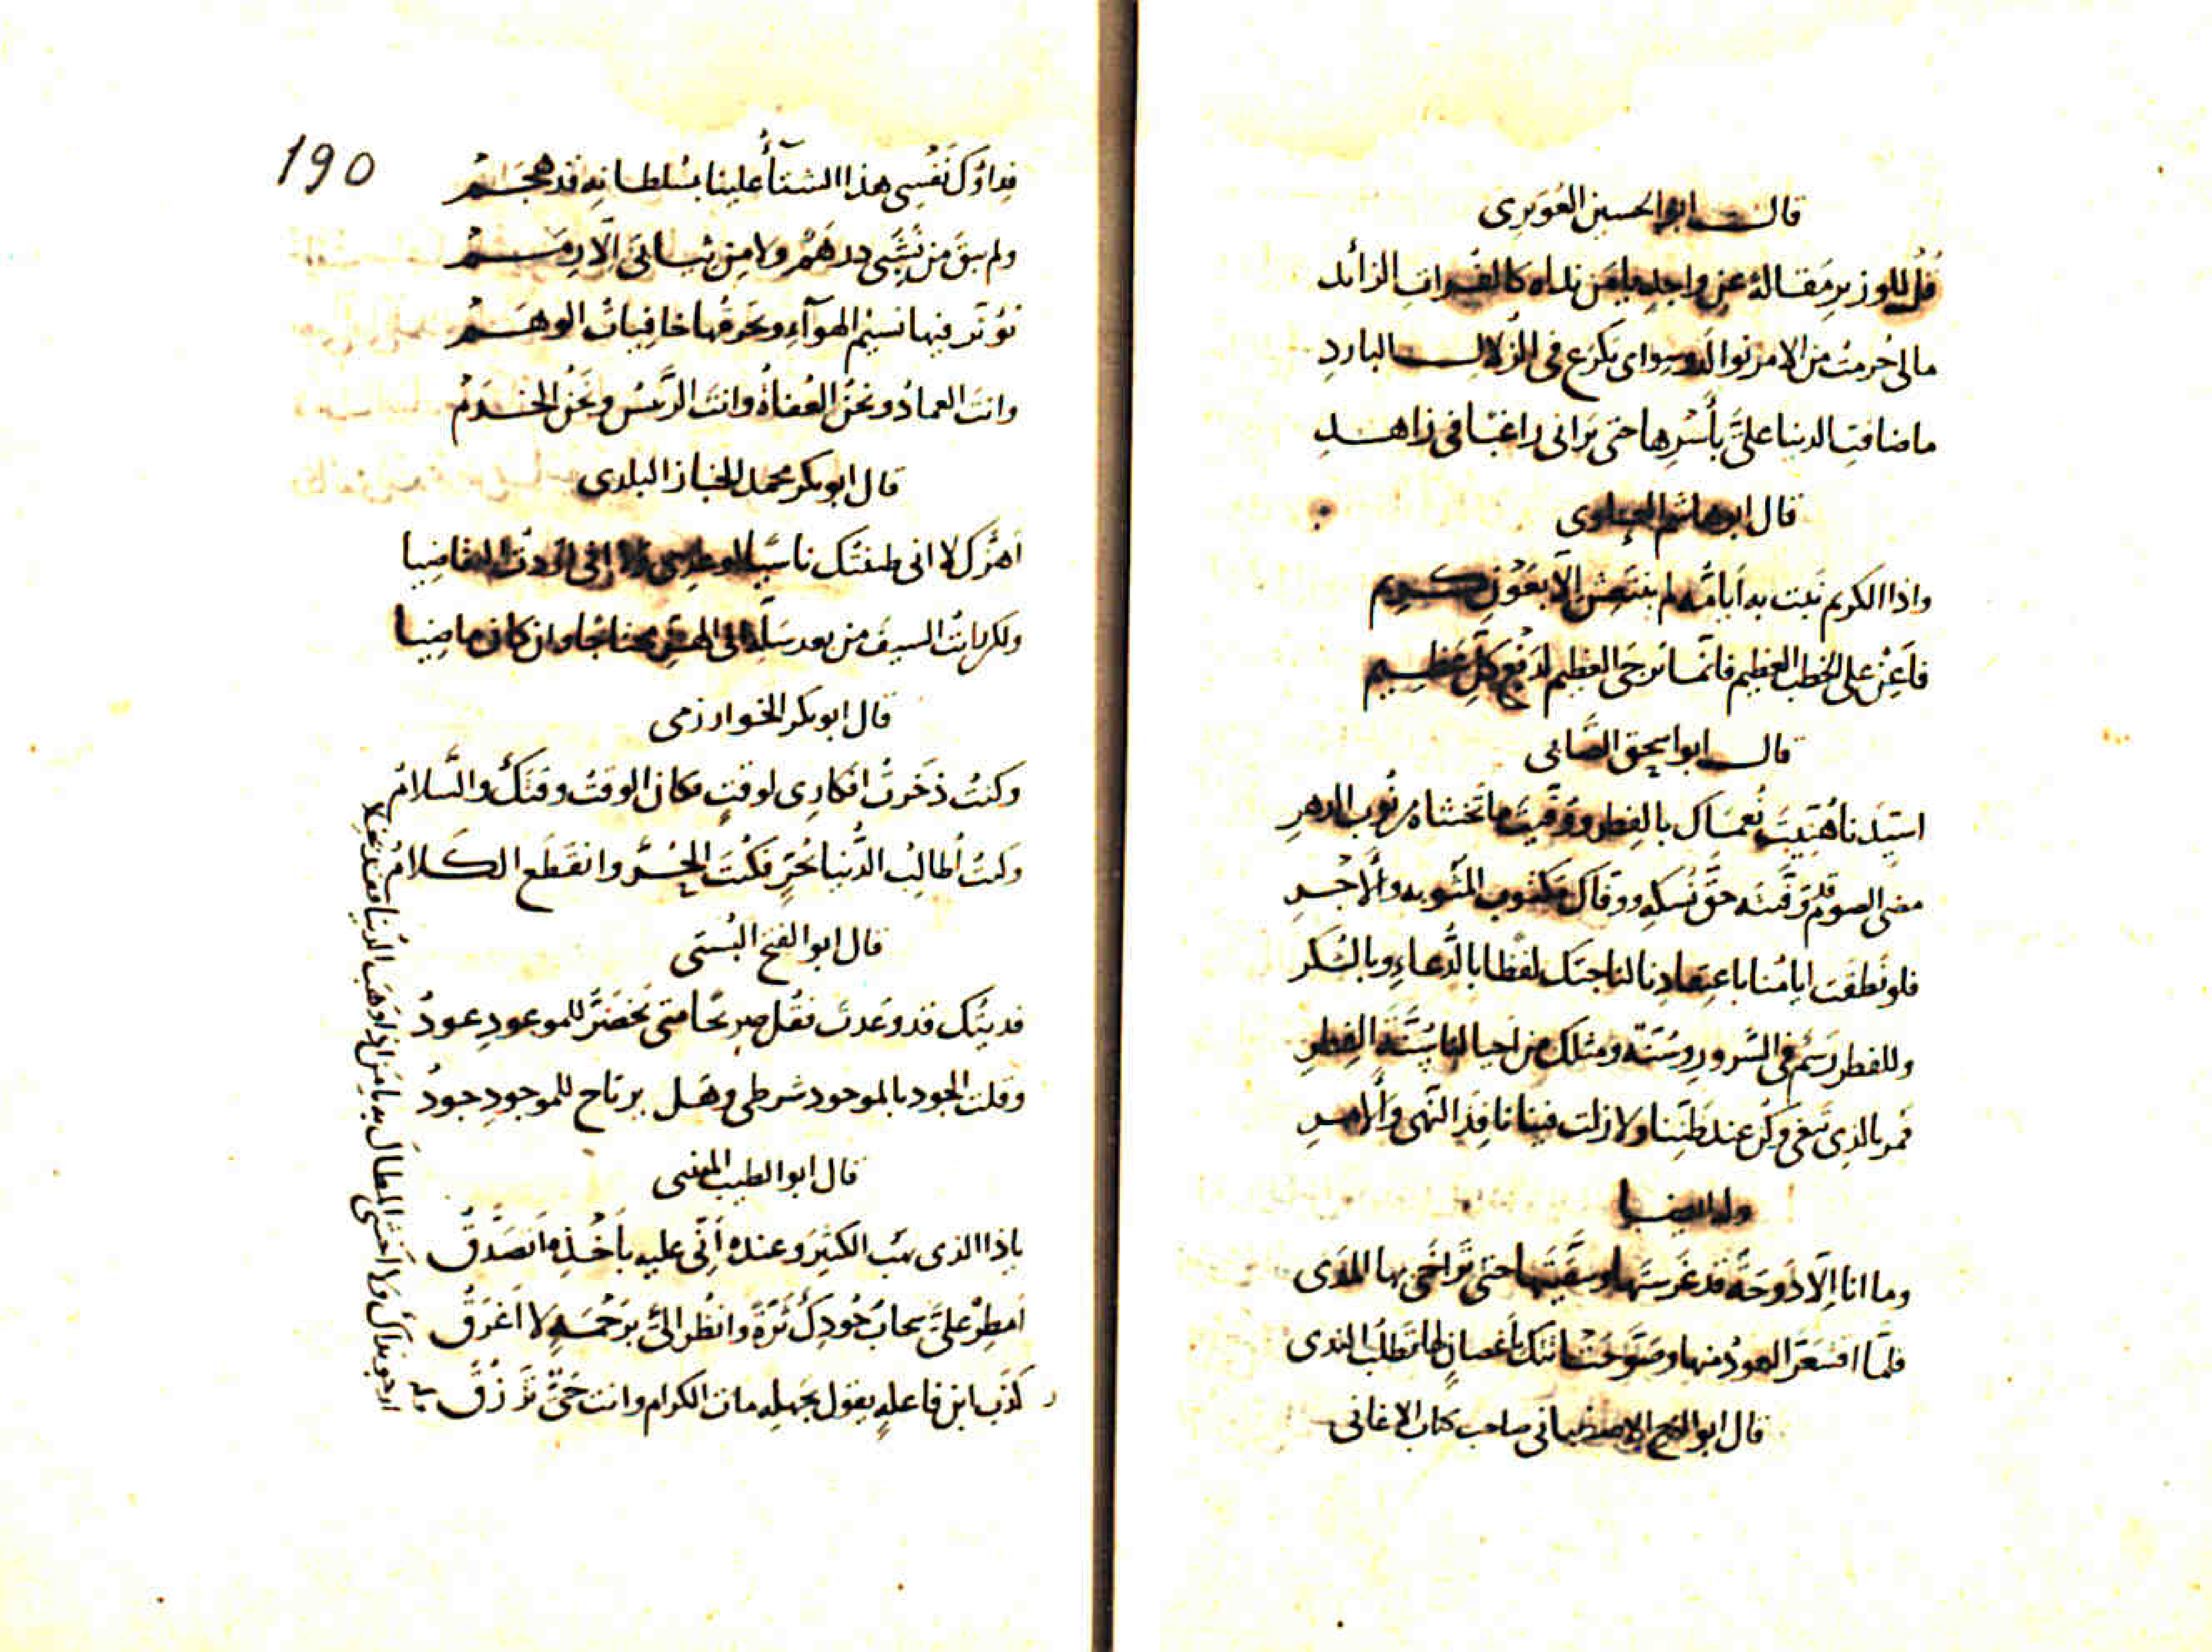 قالـــ ابو الحسين الغويرى
قُل للوزير مَقالة عن واجدٍ يا من نداه كالفرات الزائد
مالى حُرمتُ من الامر نواله وسواى يكرع فى الزلالــــ الباردِ
ماضاقتِ الدنيا علىَّ بأَسْرِها حتى تَرانى راغبًا فى زاهــدِ
قال ابو هاشم العلوى
واذا الكريم نَبَت به اَيامُه لم ينتعِش اِلّا بعَوْنِ كــريم
فاَعِنْ على الخطب العظيم فانّما تُرجَى العظيم لدَفْع كلّ عظيم
قالـــ ابو اسحق الصَّابى
اسيّدنا هُنّيتَ نُعماك بالفِطر ووُقّيتَ ما تخشاه من نُوب الدهرِ
مضى الصوم قد وَفَّيتَه حقَّ نُسكِه ووفّاك مكتوب المثوبه والأَجْـرِ
فلو نَطقَت ايامُنا باعتِقادِنا لناجتك لفظا بالدُّعاءِ وبالشكر
وللفطر رَسْم فى السّرور وسُنّة ومثلك من احيا لنا سُنَّة الفِطرِ
فمر بالذى تبغى وكُن عند ظنِّنا ولا زلت فينا نافِذَ النّهى والأَمرِ
وله ايضــا
وما انا اِلّا دَوحَةٌ قد غَرستَها وسقَّيتَها حتى تَراخَى بها المَدَى
فلمّا اقشعَرَّ العودُ منها وصوَّحَتْ اتتك باَغصانٍ لها تطلب الندى
قال ابو الفرج الاصفهانى صاحب كتاب الاغانى
190
فِداؤكَ نَفْسِى هذا الشتآءُ علينا بسُلطانِهِ قد هجَــمْ
ولم يبقَ مِن نَشَبِى دِرهَمٌ ولا مِن ثيابىَ اِلّا رِمَــمْ
تؤثّر فيها نسيم الهوآءِ وتخرقها خافيات الوهَــمْ
وانتَ العمادُ ونحنُ العُفاةُ وانتَ الرَّئيسُ ونَحْنُ الخدَمْ
قال ابو بكر محمد الخباز البلدى
اَهزُّك لا انى ظننتُك ناسيًا لوعدِى ولا انى اَردتُ التقاضِيا
ولكن رايتُ السيفَ من بعد سَلّه الى الهَزّ محتاجًا وان كان ماضِيا
قال ابو بكر الخوارزمى
وكنتُ ذخَرتُ افكارِى لوقتٍ فكان الوقتُ وقتَكَ والسَّلامُ
وكنتُ اُطالِبُ الدُّنيا بحُرٍّ فكُنتَ الحُــرَّ وانقطَع الكَلامُ
قال ابو الفتح البُستى
فديتُك قد وَعَدتَ فقُل صرِيحًا متى يَخضَرُّ للموعودِ عودُ
وقلتَ الجود بالموجود شرطى وهـل يرتاح للموجودِ جودُ
قال ابو الطيب المتنبى
ياذا الذى يَهَب الكثيرَ وعندَه اَنّى عليه باَخْذِه اَتصَدَّقُ
اَمطِرْ علىَّ سحابَ جُودِكَ ثَرّةً وانظُر الىَّ برَحْمَةٍ لا اَغرَقُ
كَذَب ابن فاعلةٍ يقول بجَهلِه مات الكرام وانت حَىٌّ تُرْزَقُ
ارجو نداك ولا اَخشى المطال به يا من اذا وهَب الدُنيا فقد بَخِلا